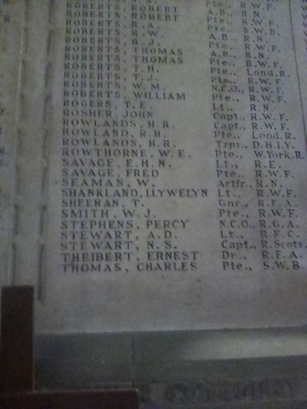 ROBERTS, ROBERT Pte., R.W.F.
ROBERTS, ROBERT A.B., R.N.
ROBERTS, R.A. Pte., R.W.F.
ROBERTS, R.W. Pte., S.W.B.
ROBERTS, R.J. A.B., R.N.
ROBERTS, THOMAS Pte., R.W.F.
ROBERTS, THOMAS A.B., R.N.
ROBERTS, T.H. Pte., R.W.F.
ROBERTS, T.J. Pte., Lond.R.
ROBERTS, W.M. Pte., R.W.F.
ROBERTS, WILLIAM N.C.O., R.W.F.
ROGERS, T.E. Pte., R.W.F.
ROSHER, JOHN Lt., R.N.
ROWLANDS, H.R. Capt., R.W.F.
ROWLAND, R.H. Pte., Lond.R.
ROWLANDS, H.R. Trpr., D.H.I.Y.
ROWTHORNE, W.E. Pte., W.York.R.
SAVAGE, E.H.N. Lt., R.E.
SAVAGE, FRED Pte., R.W.F.
SEAMAN, W. Artfr., R.N.
SHANKLAND, LLYWELYN Lt., R.W.F.
SHEERAN, T. Gnr., R.F.A.
SMITH, W.J. Pte., R.W.F.
STEPHENS, PERCY N.C.O., R.G.A.
STEWART, A.D. Lt., R.F.C.
STEWART, N.S. Capt., R.Scots.
THEIBERT, ERNEST Dr., R.F.A.
THOMAS, CHARLES Pte., S.W.B.